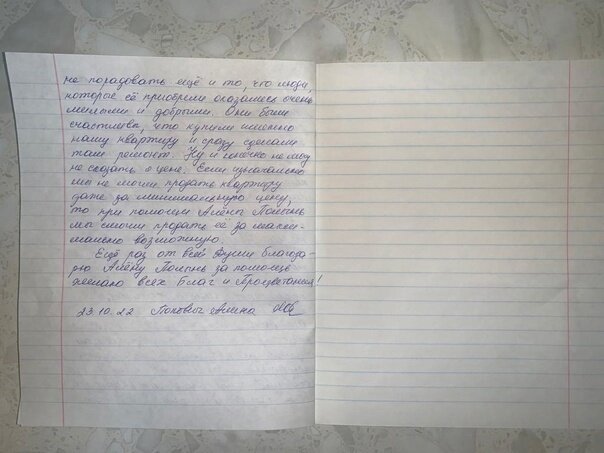 не порадовать ещё и то, что люди,
которые её приобрели оказались очень
милыми и добрыми. Они были
счастливы, что купили именно
нашу квартиру и сразу сделали
там ремонт. Ну и конечно не могу
не сказать о цене. Если изначально
мы не могли продать квартиру
даже за минимальную цену,
то при помощи Алёны Полынь
мы смогли продать её за макси-
мально возможную.
Ещё раз от всей Души благода-
рю Алёну Полынь за помощь
желаю всех Благ и Процветания!
23.10.22 Попович Алина